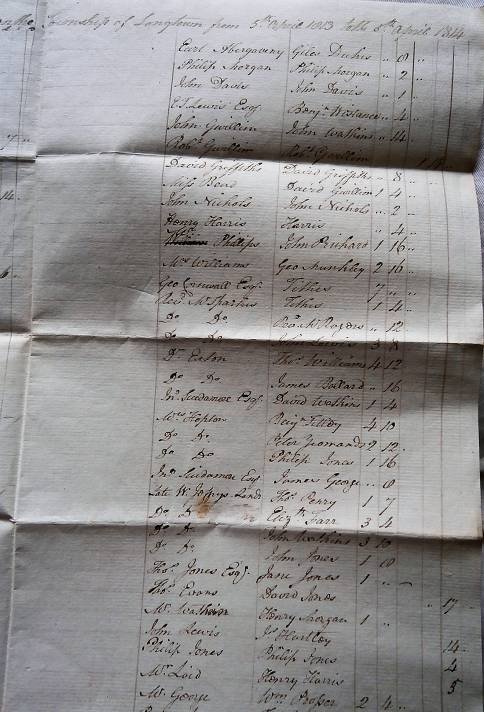 Township of Longtown from 5th April 1813 to the 5th April 1814
Earl Abergaveny Giles Duhis " 8 "
Philip Morgan Philip Morgan " 2 "
John Davis John Davis " 1 "
E T Lewis Esqr Benjn Wistance " 4 "
John Gwillim John Watkins " 14
Robt Gwillim Robt Gwillim
David Griffiths David Griffiths " 8
Miss Bead David Gwillim 2 4 "
John Nichols John Nichols " 2 "
Henry Harris Harris " 4 "
Mr Phillips John Prichard 1 16 "
Mrs Williams Geo 2 16 "
Geo Cornwall Esqr Tithes 7 " "
Revd Wm Parkes Tithes 1 4 "
Do Do Rogers " 12
Do Do Lewis 3 8
Dr Exton Thos Williams 4 12
Do Do James Ballard " 16
Jno Scudamore Esqr David Watkins 1 4
Mrs Hopton Benjn 4 10
Do Do Peter Yeomans 2 12
Do Do Philip Jones 1 16
Jno Scudamore Esqr James George " 6
Late W. Land Thos Perry 1 7
Do Do Elizth Farr 3 4
Do Do John Watkins 3 10
Do Do John Jones 1 8
Thos Jones Esqr Jane Jones 1 "
Thos Evans David Jones " 17
Mr Watkins Henry Morgan 1 "
John Lewis Js Huntley
Philip Jones Philip Jones 14
Mr Laid Henry Harris 4
Mr George Wm Prosser 2 4 "
5